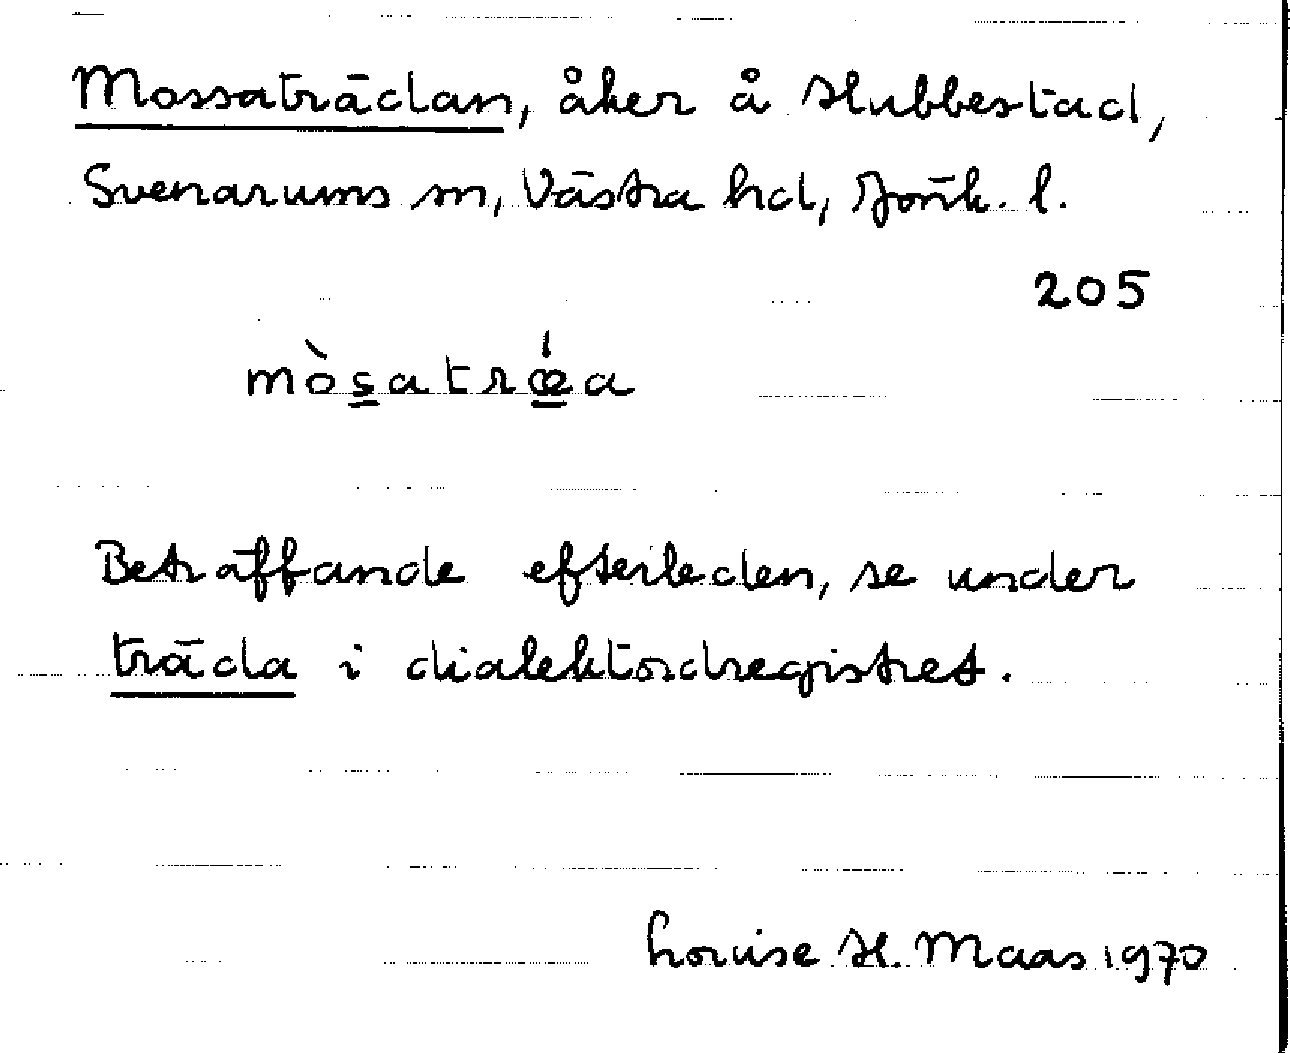 Mossaträdan, åker å Hubbestad,
Svenarums sn, Västra hd, Jönk. l.
205
mòs̲atrœ̲́a
Beträffande efterleden, se under
träda i dialektordregistret.
Louise H. Maas 1970